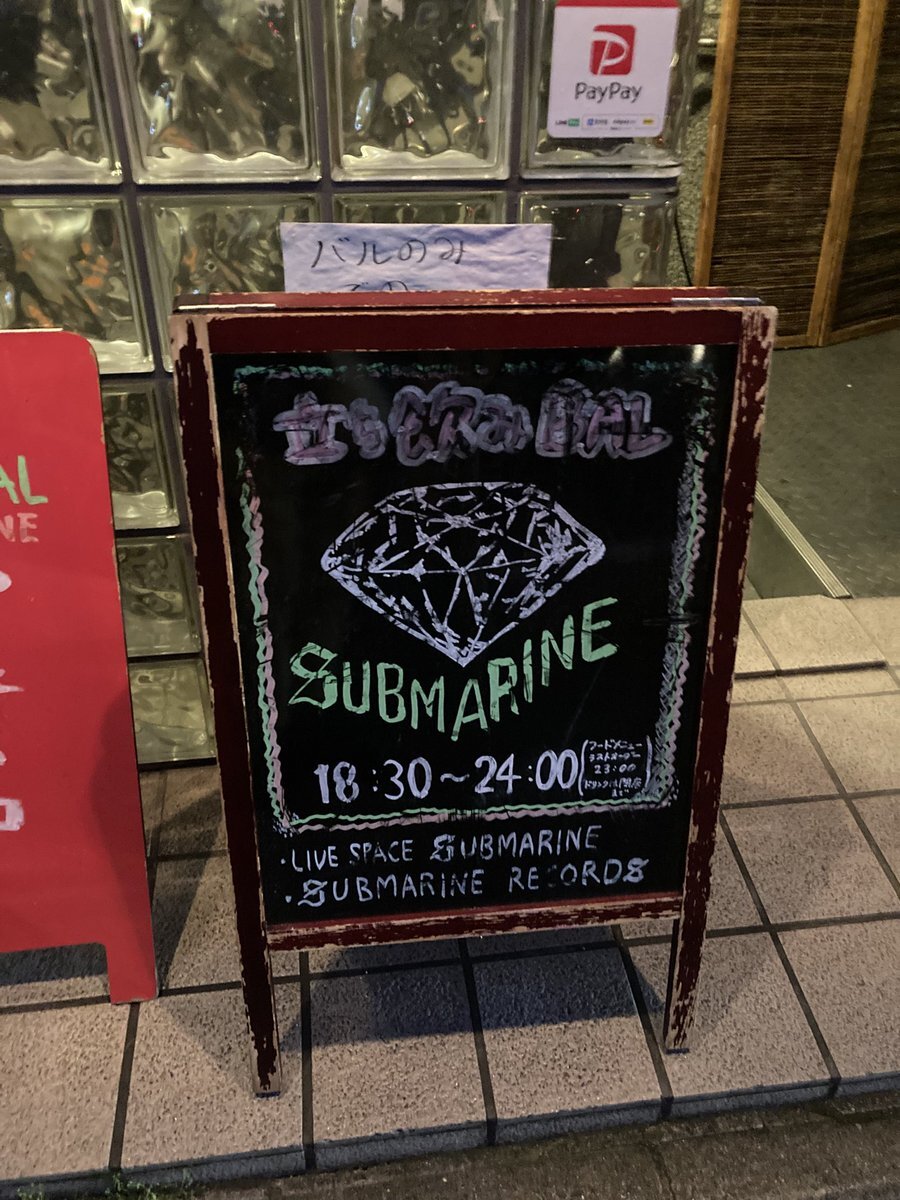 PayPay
バルのみ
立ち飲みBAL
SUBMARINE
18:30~24:00
フードメニュー
ラストオーダー
23:00
・LIVE SPACE SUBMARINE
・SUBMARINE RECORDS
AL
NE